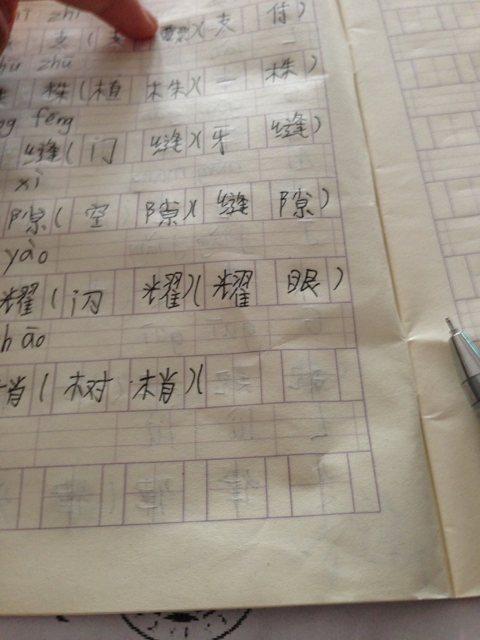 zhi
支(支 )(支付)
zhū
株(植株)(一株)
fèng
缝(门缝)(牙缝)
xì
隙(空隙)(缝隙)
yào
耀(闪耀)(耀眼)
hāo
梢(树梢)(